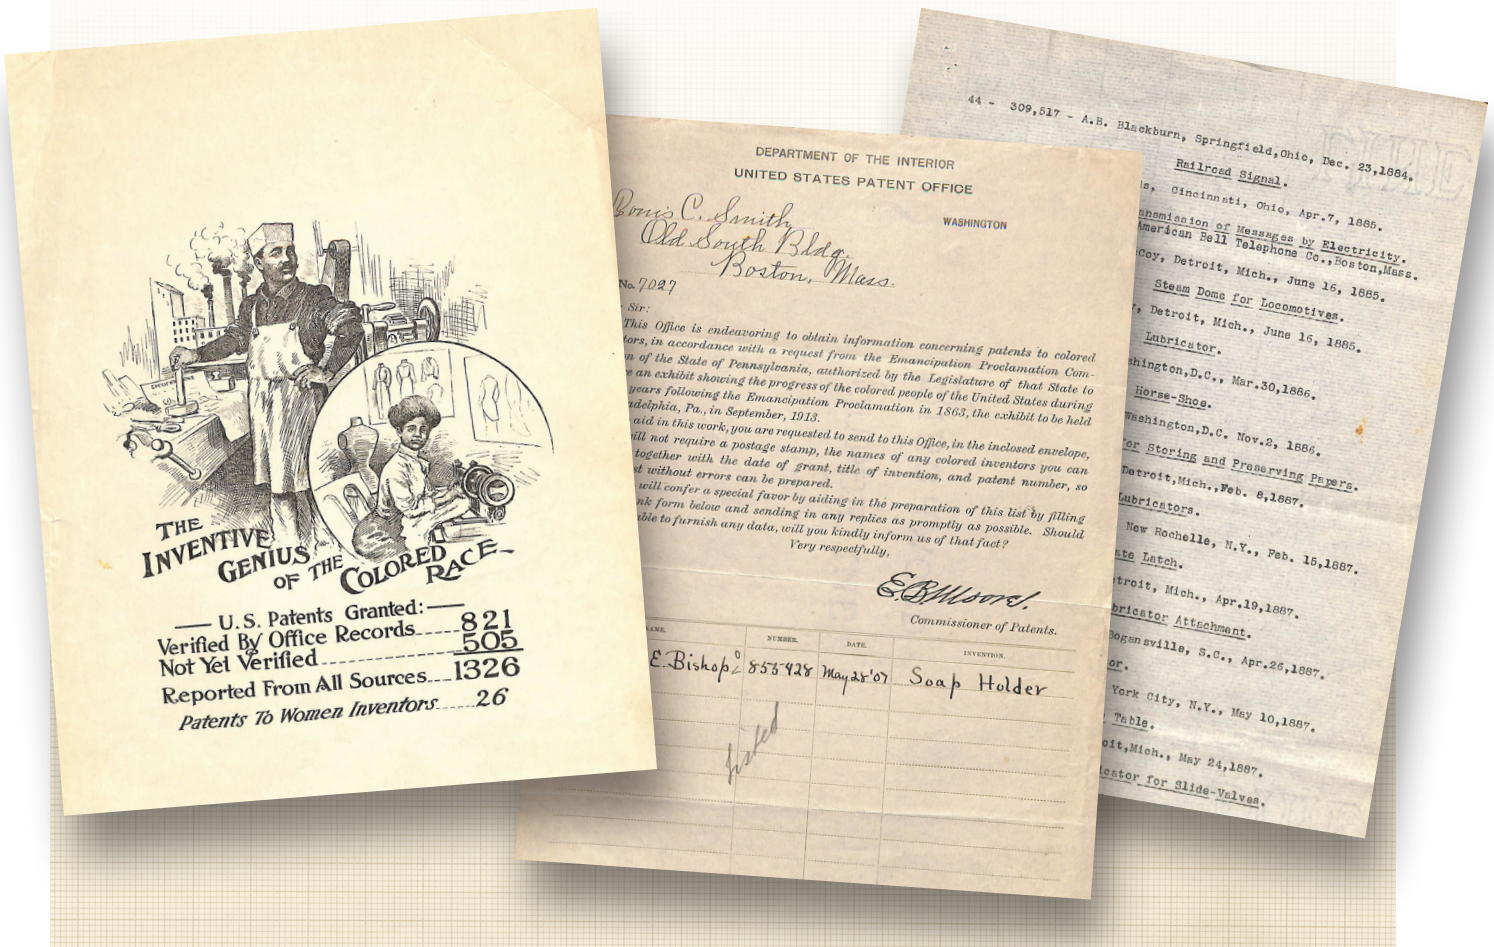 THE
INVENTIVE
GENIUS
OF THE COLORED
RACE
U.S. Patents Granted:
Verified By Office Records 821
Not Yet Verified 505
Reported From All Sources 1326
Patents To Women Inventors 26
DEPARTMENT OF THE INTERIOR
UNITED STATES PATENT OFFICE
WASHINGTON
C. Smith
Old South Bldg.
Boston, Mass.
No. 7027
Sir:
This Office is endeavoring to obtain information concerning patents to colored
tors, in accordance with a request from the Emancipation Proclamation Com-
n of the State of Pennsylvania, authorized by the Legislature of that State to
e an exhibit showing the progress of the colored people of the United States during
years following the Emancipation Proclamation in 1863, the exhibit to be held
adelphia, Pa., in September, 1913.
aid in this work, you are requested to send to this Office, in the inclosed envelope,
ill not require a postage stamp, the names of any colored inventors you can
together with the date of grant, title of invention, and patent number, so
st without errors can be prepared.
will confer a special favor by aiding in the preparation of this list by filling
nk form below and sending in any replies as promptly as possible. Should
able to furnish any data, will you kindly inform us of that fact?
Very respectfully,
E.B. Moore
Commissioner of Patents.
NAME. NUMBER. DATE. INVENTION.
E. Bishop 855428 May 28 '07 Soap Holder
listed
44 - 309,517 - A.B. Blackburn, Springfield, Ohio, Dec. 23,1884.
Railroad Signal.
s, Cincinnati, Ohio, Apr.7, 1885.
ansmission of Messages by Electricity.
American Bell Telephone Co., Boston, Mass.
coy, Detroit, Mich., June 16, 1885.
Steam Dome for Locomotives.
, Detroit, Mich., June 16, 1885.
Lubricator.
shington, D.C., Mar.30,1886.
Horse-Shoe.
Washington, D.C. Nov.2, 1886.
or Storing and Preserving Papers.
Detroit, Mich., Feb. 8,1887.
Lubricators.
New Rochelle, N.Y., Feb. 15,1887.
ate Latch.
etroit, Mich., Apr.19,1887.
bricator Attachment.
Bogansville, S.C., Apr.26,1887.
or.
York City, N.Y., May 10,1887.
Table.
oit, Mich., May 24,1887.
icator for Slide-Valves.